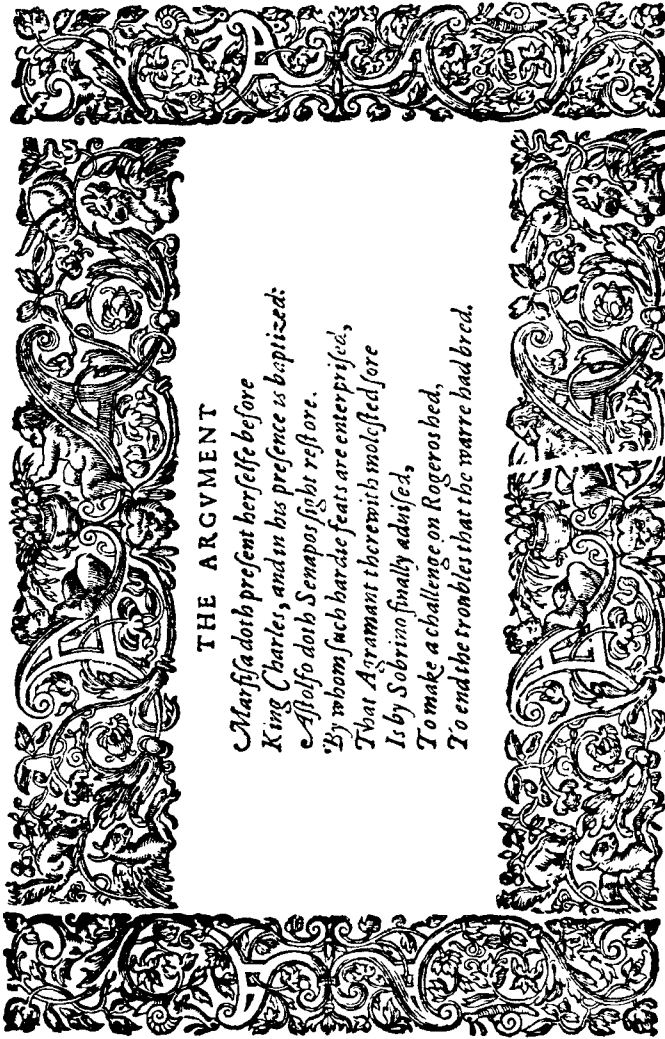 THE ARGVMENT
Marfiſa doth preſent herſelfe before
King Charles, and in his preſence is baptized:
Aſtolfo doth Senapos ſight reſtore.
By whom ſuch hardie feats are enterpriſed,
That Agramant therewith moleſted ſore
Is by Sobrino finally aduiſed,
To make a challenge on Rogeros hed,
To end the troubles that the warre had bred.